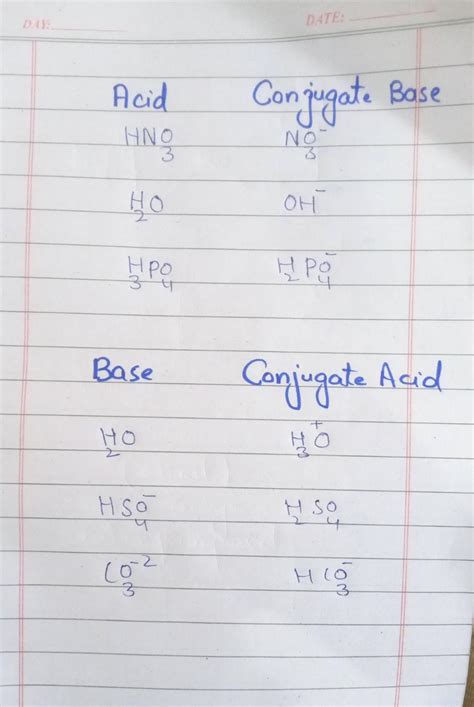 DAY: DATE:
Acid Conjugate Base
HNO₃ NO₃⁻
H₂O OH⁻
H₃PO₄ H₂PO₄⁻
Base Conjugate Acid
H₂O H₃O⁺
HSO₄⁻ H₂SO₄
CO₃⁻² HCO₃⁻